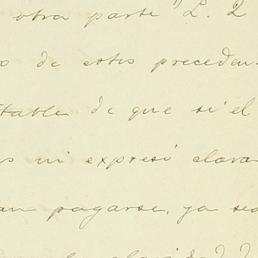 otra parte" L. 2
o de estos preceden-
table de que si el
as ni expresó clara
an pagarse, ya sea